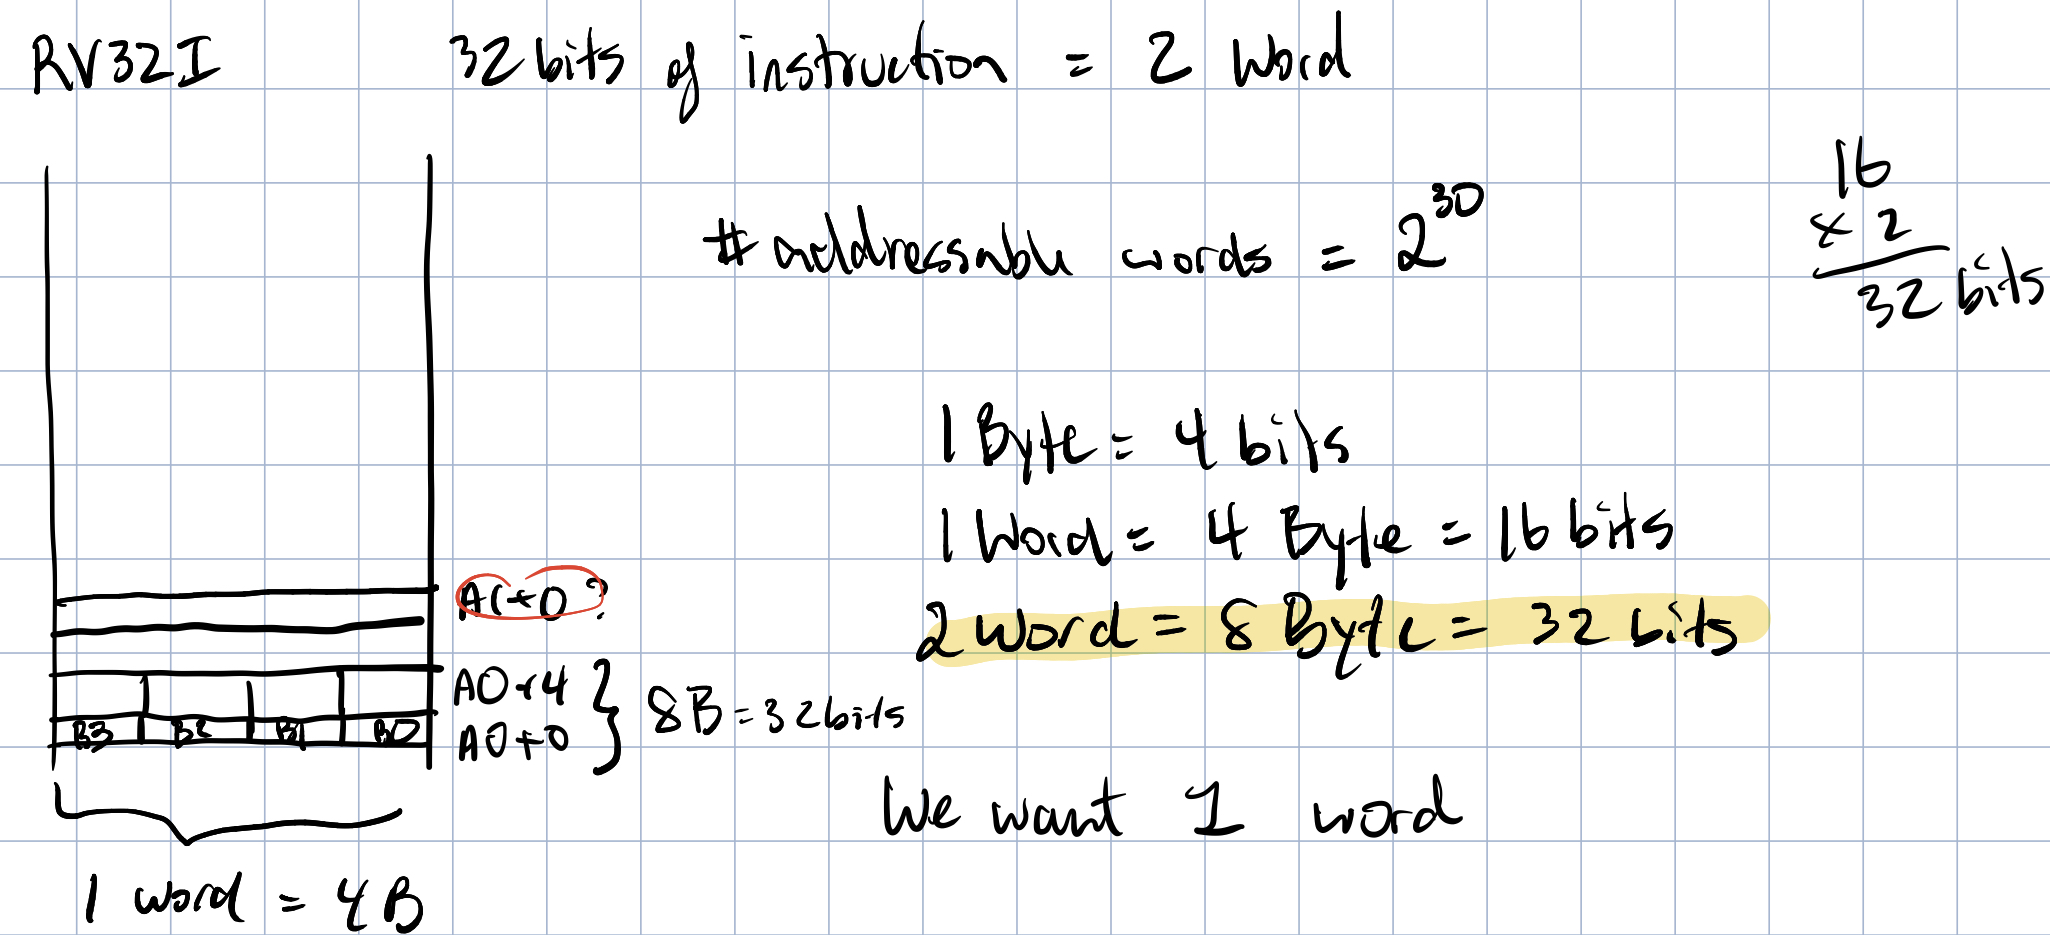 RV32I 32 bits of instruction = 2 Word
# addressable words = 2^30
16
x 2
32 bits
1 Byte = 4 bits
1 Word = 4 Byte = 16 bits
2 word = 8 Byte = 32 bits
A0+4
A0+0
8B = 32 bits
B3 B2 B1 B0
We want 1 word
1 word = 4B